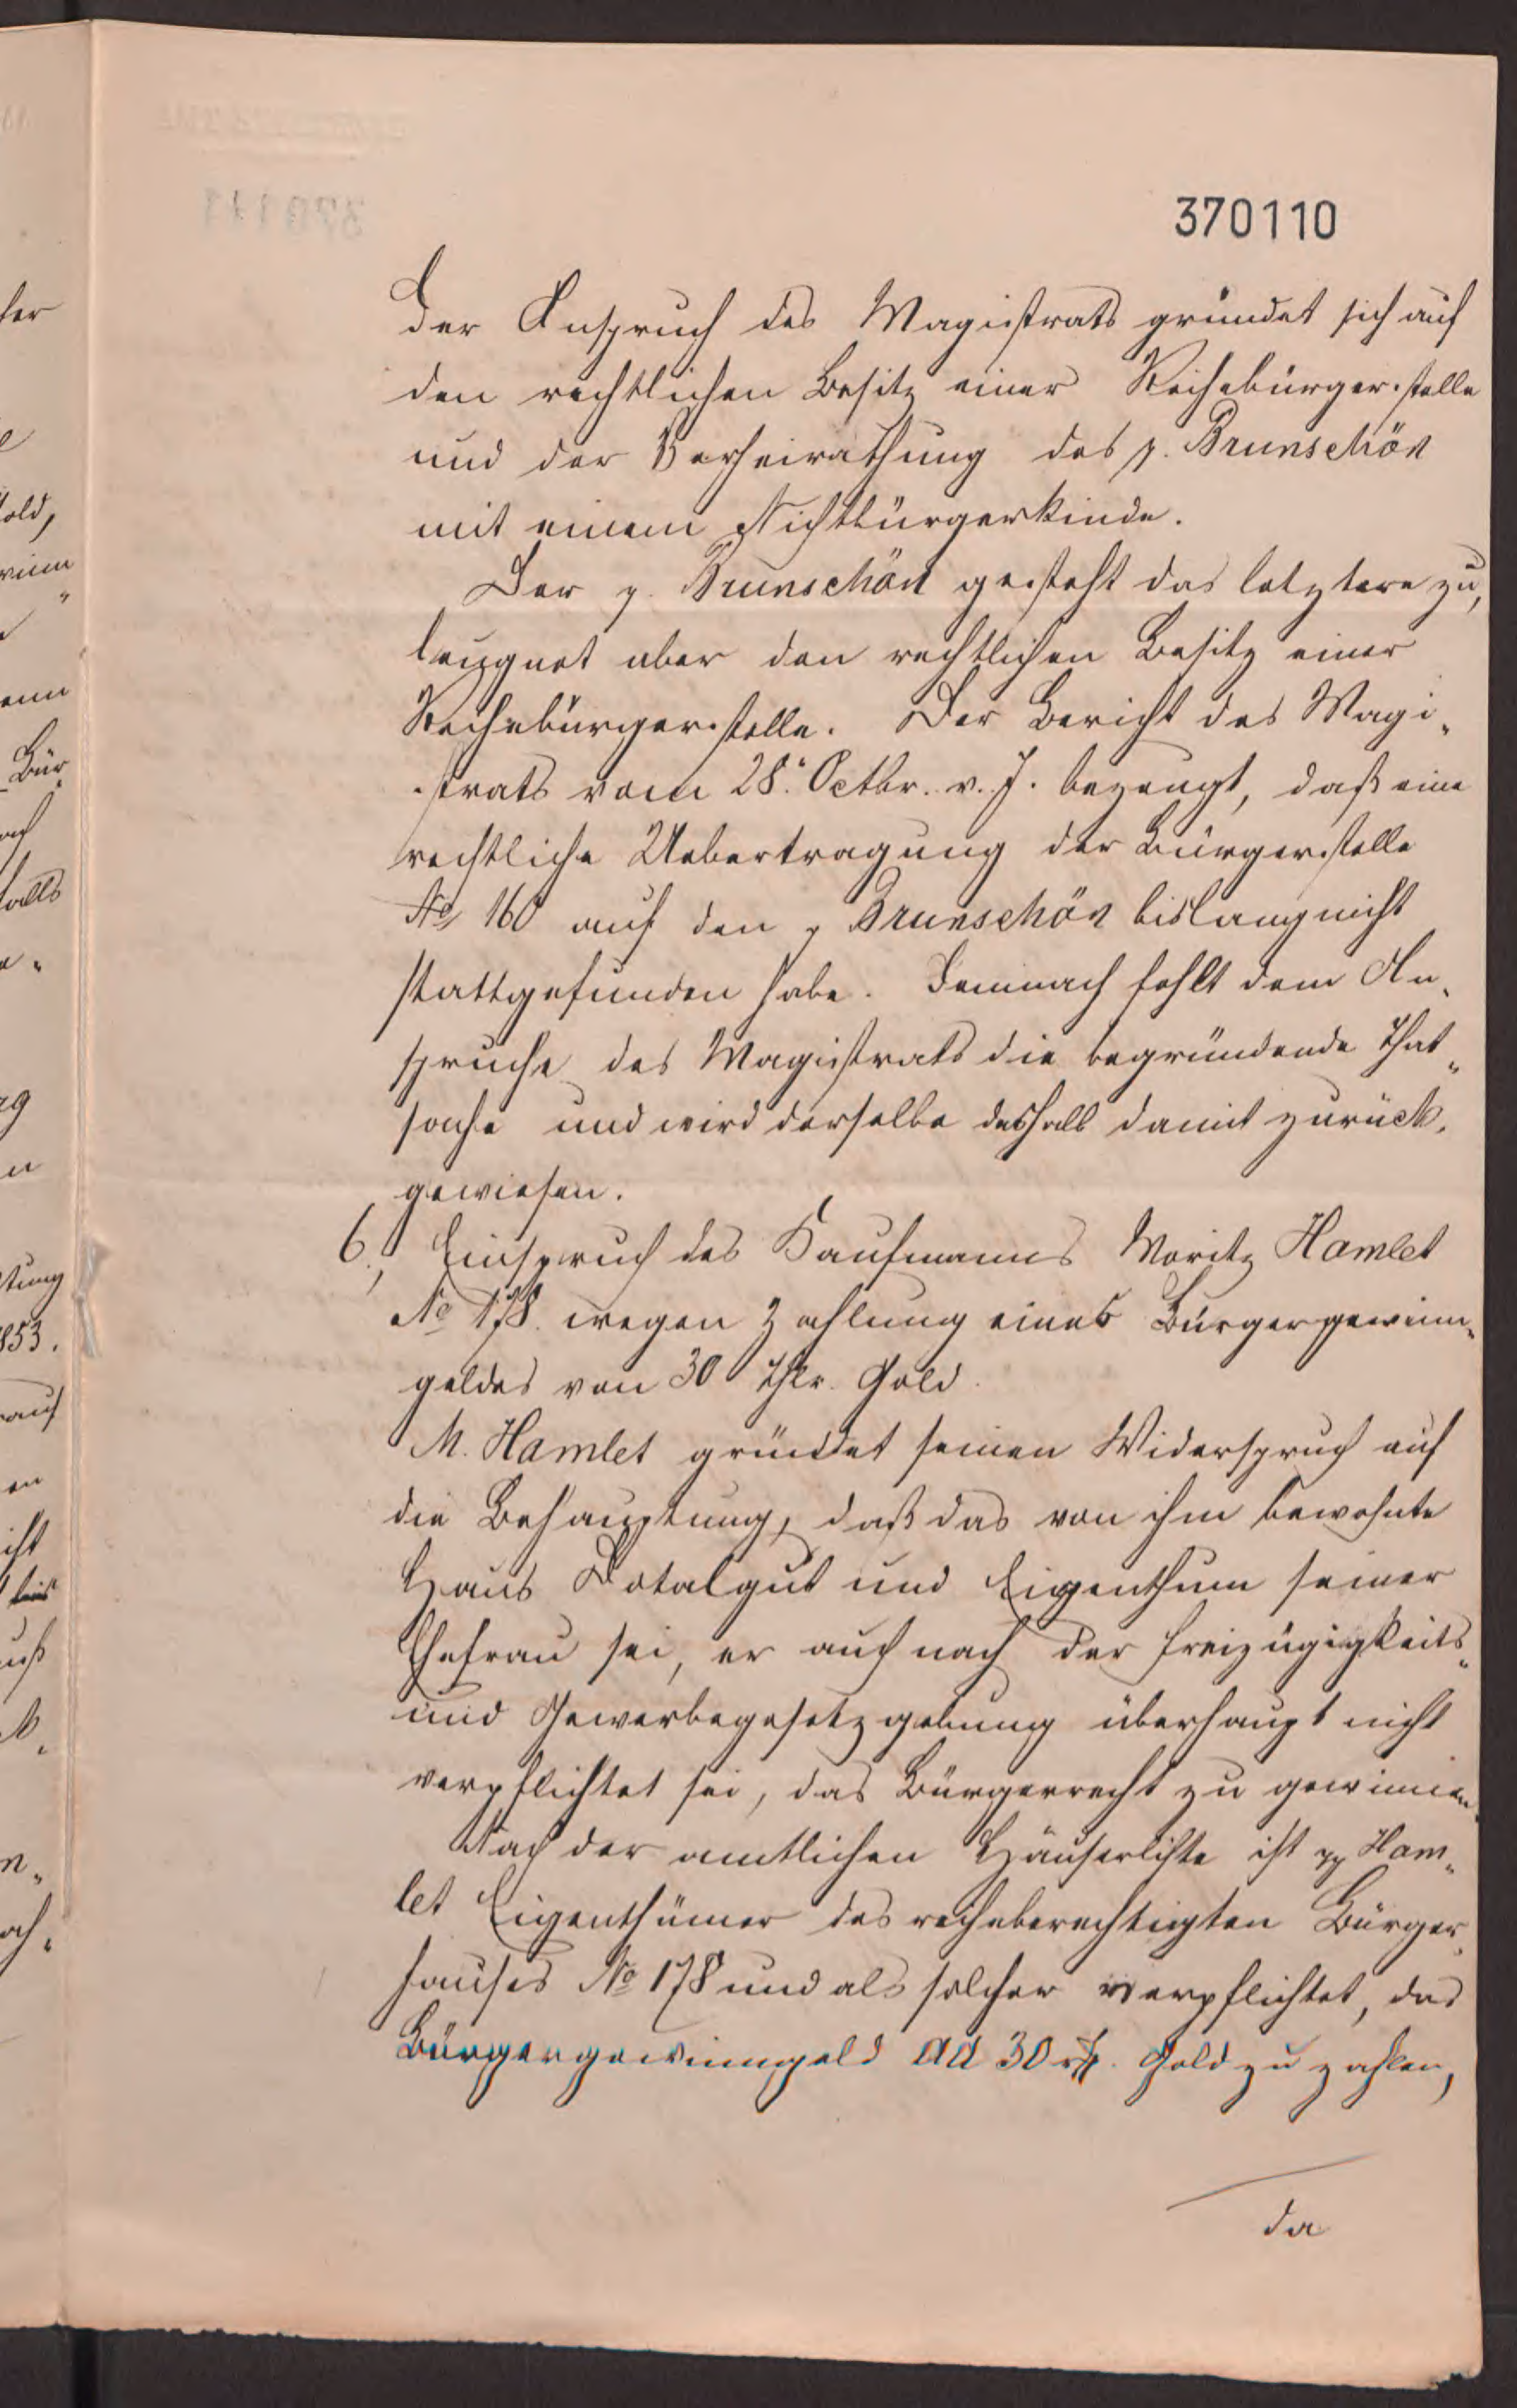 370110
Der Anspruch des Magistrats gründet sich auf
den rechtlichen Besitz einer Reihebürgerstelle
und der Verheirathung des p. Brunschön
mit einem Nichtbürgerkinde.
Der p. Brunschön gesteht das letztere zu,
leugnet aber den rechtlichen Besitz einer
Reihebürgerstelle. Der Bericht des Magi-
strats vom 28. Octbr. v. J. bezeugt, daß eine
rechtliche Uebertragung der Bürgerstelle
No 160 auf den p Brunschön bislang nicht
stattgefunden habe. Demnach fehlt dem An-
spruche des Magistrats die begründende That-
sache und wird derselbe deshalb damit zurück-
gewiesen.
6., Einspruch des Kaufmanns Moritz Hamlet
No 178. wegen Zahlung eines Bürgergewinn-
geldes von 30 Thlr. Gold.
M. Hamlet gründet seinen Widerspruch auf
die Behauptung, daß das von ihm bewohnte
Haus Dotalgut und Eigenthum seiner
Ehefrau sei, er auch nach der Freizügigkeits-
und Gewerbegesetzgebung überhaupt nicht
verpflichtet sei, das Bürgerrecht zu gewinnen.
Nach der amtlichen Häuserliste ist pp Ham-
let Eigenthümer des reiheberechtigten Bürger-
hauses No 178 und als solcher verpflichtet, das
Bürgergewinngeld ad 30 rth. Gold zu zahlen,
da